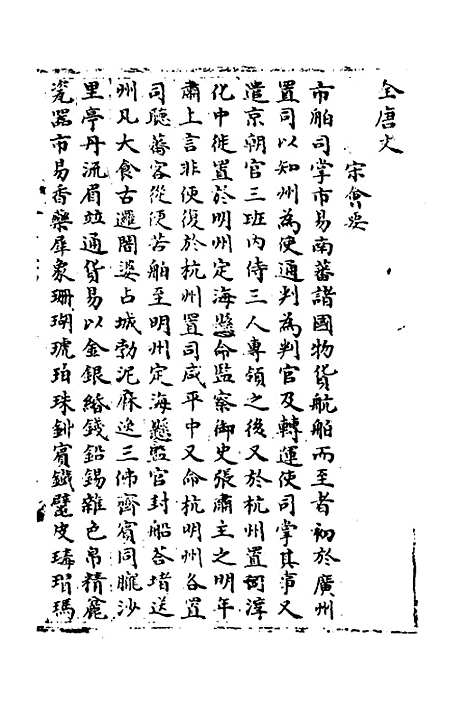 全唐文
宋會要
市舶司掌市易南蕃諸國物貨航舶而至者初於廣州
置司以知州為使通判為判官及轉運使司掌其事又
遣京朝官三班內侍三人專領之後又於杭州置司淳
化中徙置於明州定海縣命監察御史張肅主之明年
肅上言非便復於杭州置司咸平中又命杭明州各置
司聽蕃客從便若舶至明州定海縣監官封船荅堵送
州凡大食古邏闍婆占城勃泥麻逸三佛齊賓同朧沙
里亭丹流眉並通貨易以金銀緡錢鉛錫雜色帛精麄
瓷器市易香藥犀象珊瑚琥珀珠釧賓鐵鼊皮瑇瑁瑪